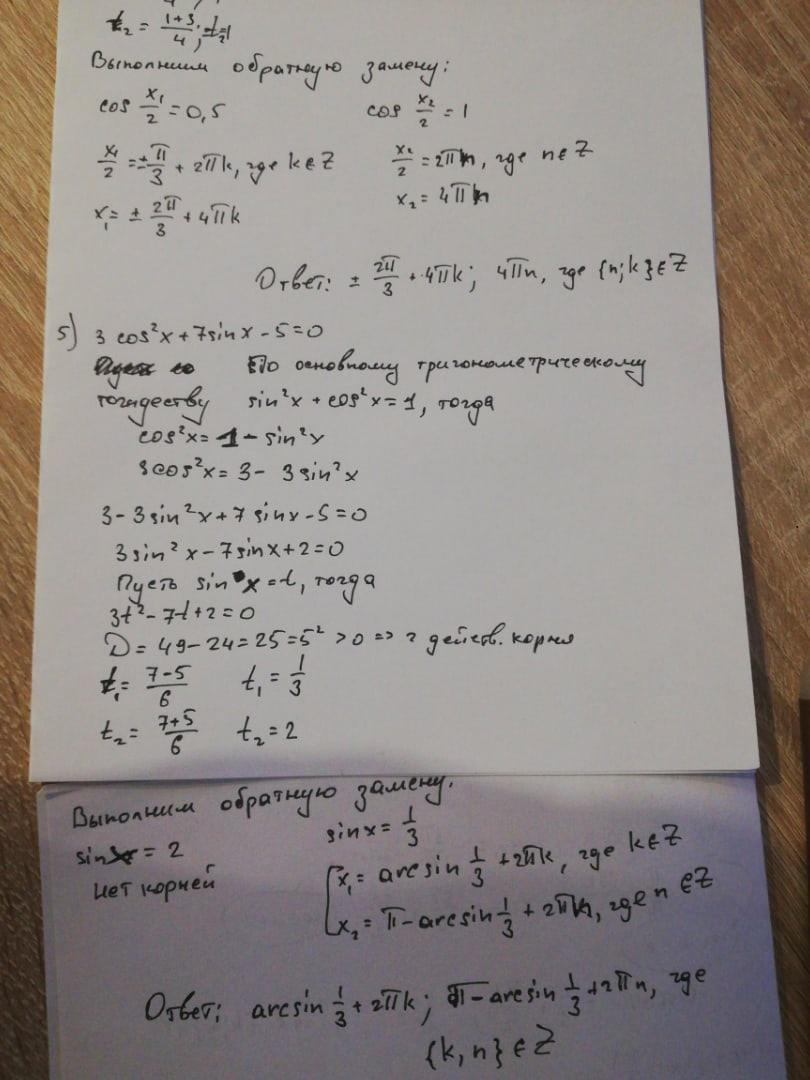 t₂ = (1+3)/4; t₂=1
Выполним обратную замену:
cos x₁/2 = 0,5    cos x₂/2 = 1
x₁/2 = ± π/3 + 2πk, где k∈Z    x₂/2 = 2πn, где n∈Z
x₁ = ± 2π/3 + 4πk    x₂ = 4πn
Ответ: ± 2π/3 + 4πk; 4πn, где {n;k}∈Z
5) 3 cos²x + 7sinx - 5 = 0
По основному тригонометрическому
тождеству sin²x + cos²x = 1, тогда
cos²x = 1 - sin²x
3cos²x = 3 - 3sin²x
3 - 3sin²x + 7 sinx - 5 = 0
3sin²x - 7sinx + 2 = 0
Пусть sin x = t, тогда
3t² - 7t + 2 = 0
D = 49 - 24 = 25 = 5² > 0 => 2 действ. корня
t₁ = (7-5)/6    t₁ = 1/3
t₂ = (7+5)/6    t₂ = 2
Выполним обратную замену.
sinx = 2    sinx = 1/3
нет корней    [ x₁ = arcsin 1/3 + 2πk, где k∈Z
x₂ = π - arcsin 1/3 + 2πn, где n∈Z
Ответ: arcsin 1/3 + 2πk; π - arcsin 1/3 + 2πn, где
{k,n}∈Z